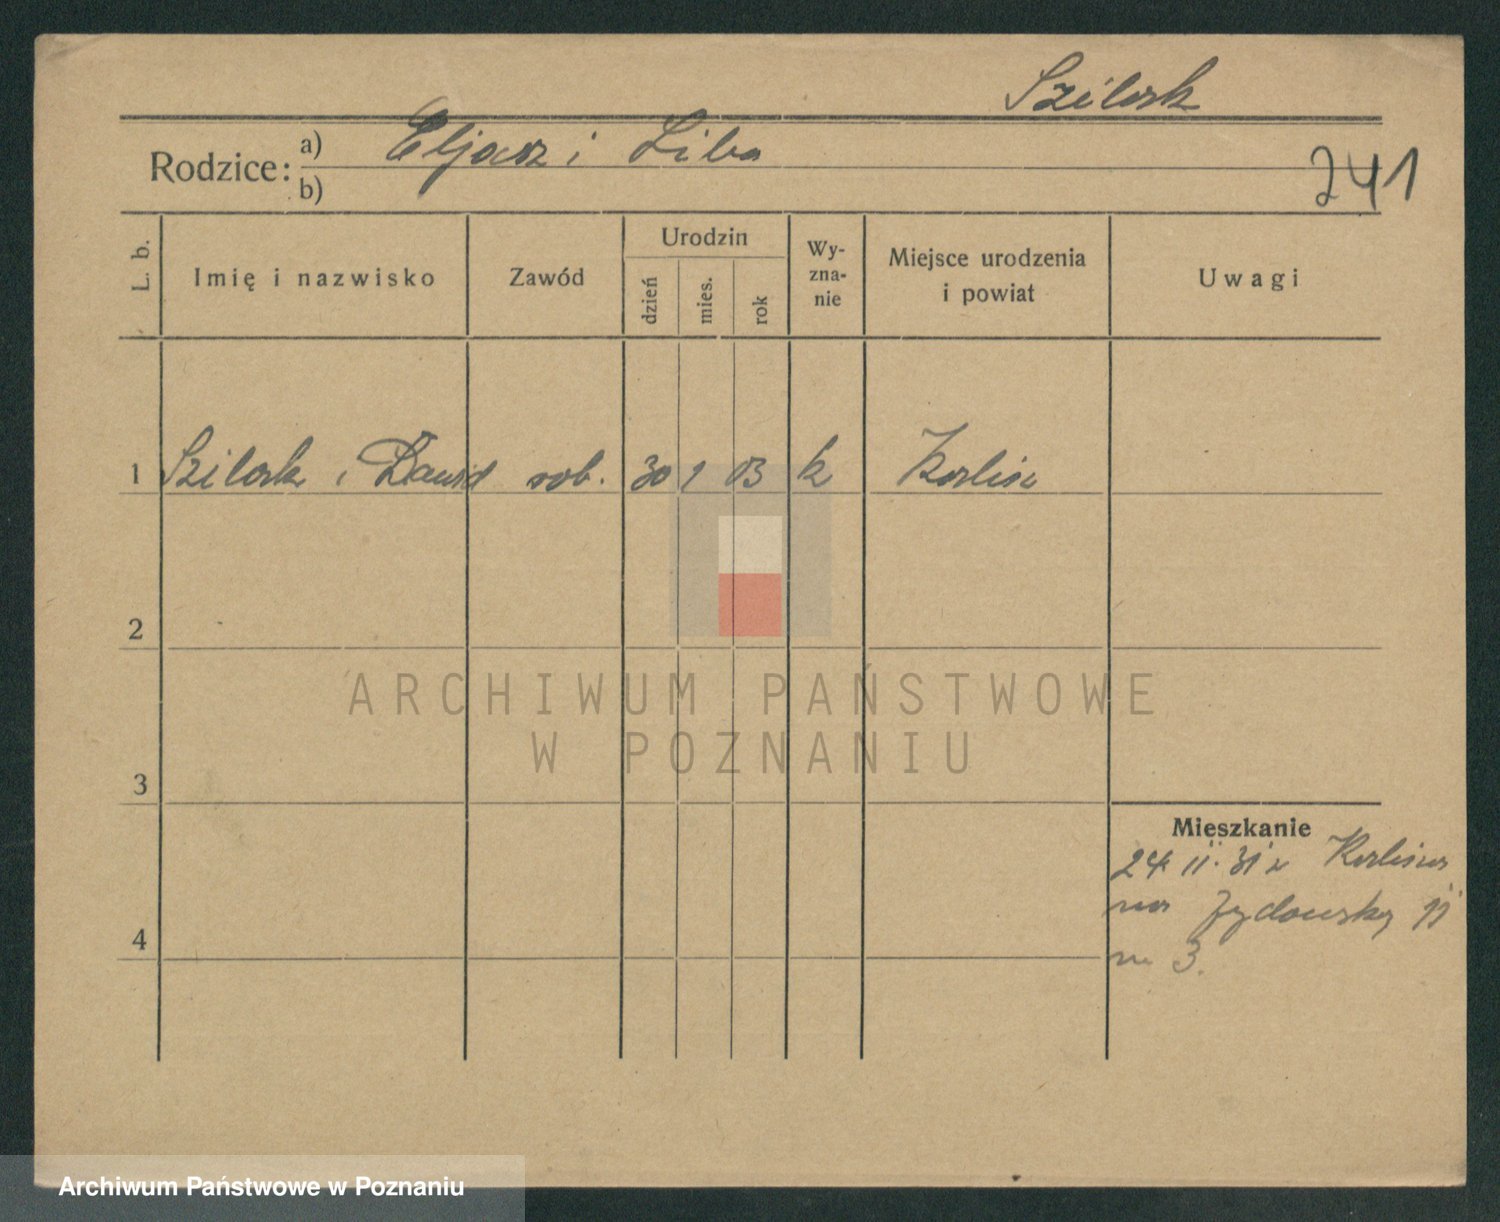 Szilork
Rodzice: a) Eljasz i Liba
b)
241
L. b.
Imię i nazwisko
Zawód
Urodzin
dzień
mies.
rok
Wy-
zna-
nie
Miejsce urodzenia
i powiat
Uwagi
1 Szilork Dawid rob. 30 1 03
2
3
4
Mieszkanie
24 II. 31 z
na Żydowską 11
m 3.
ARCHIWUM PAŃSTWOWE
W POZNANIU
Archiwum Państwowe w Poznaniu